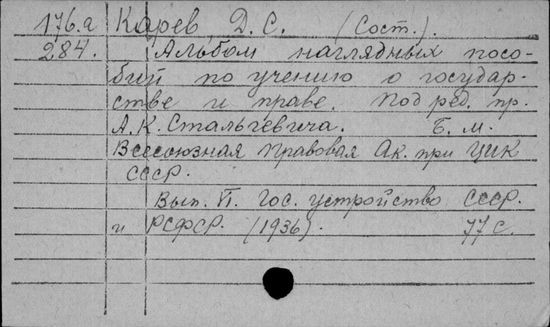 176.а Карев, Д. С. (Сост.).
284. Альбом наглядных посо-
бий по учению о государ-
стве и праве. Под ред. пр.
А. К. Стальгевича. Б. м.
Всесоюзная Правовая Ак. при ЦИК
СССР.
Вып. II. Гос. устройство СССР.
и РСФСР. (1936). 77 с.